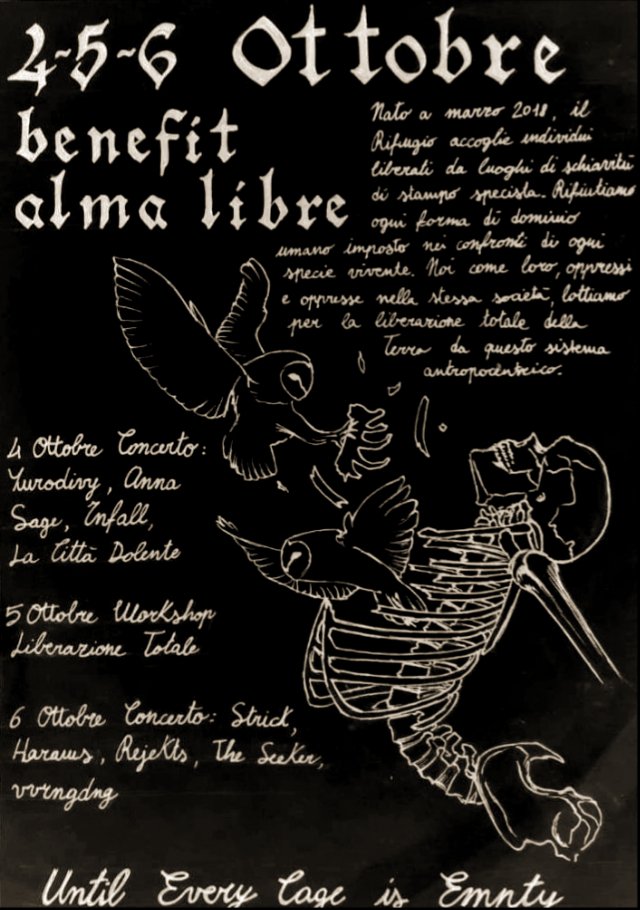 4-5-6 Ottobre
benefit
alma libre
Nato a marzo 2018, il
Rifugio accoglie individui
liberati da luoghi di schiavitù
di stampo specista. Rifiutiamo
ogni forma di dominio
umano imposto nei confronti di ogni
specie vivente. Noi come loro, oppressi
e oppresse nella stessa società, lottiamo
per la liberazione totale della
Terra da questo sistema
antropocentrico.
4 Ottobre Concerto:
Yurodivy, Anna
Sage, Infall,
La Città Dolente
5 Ottobre Workshop
Liberazione Totale
6 Ottobre Concerto: Strict,
Haraus, Rejekts, The Seeker,
vvrngdng
Until Every Cage is Empty